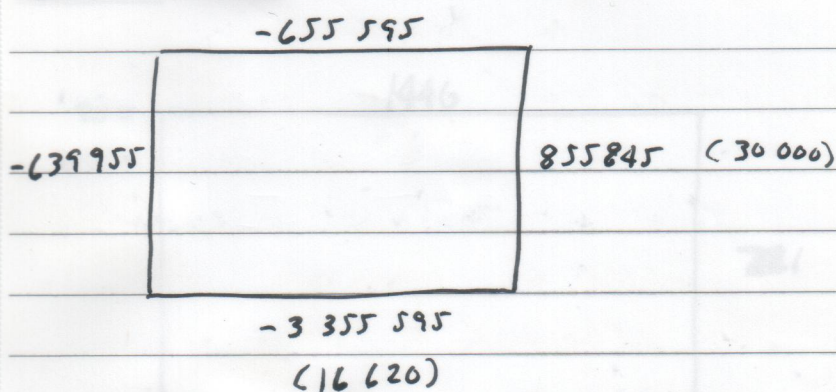 -655 595
-639955 855845 (30 000)
-3 355 595
(16 620)